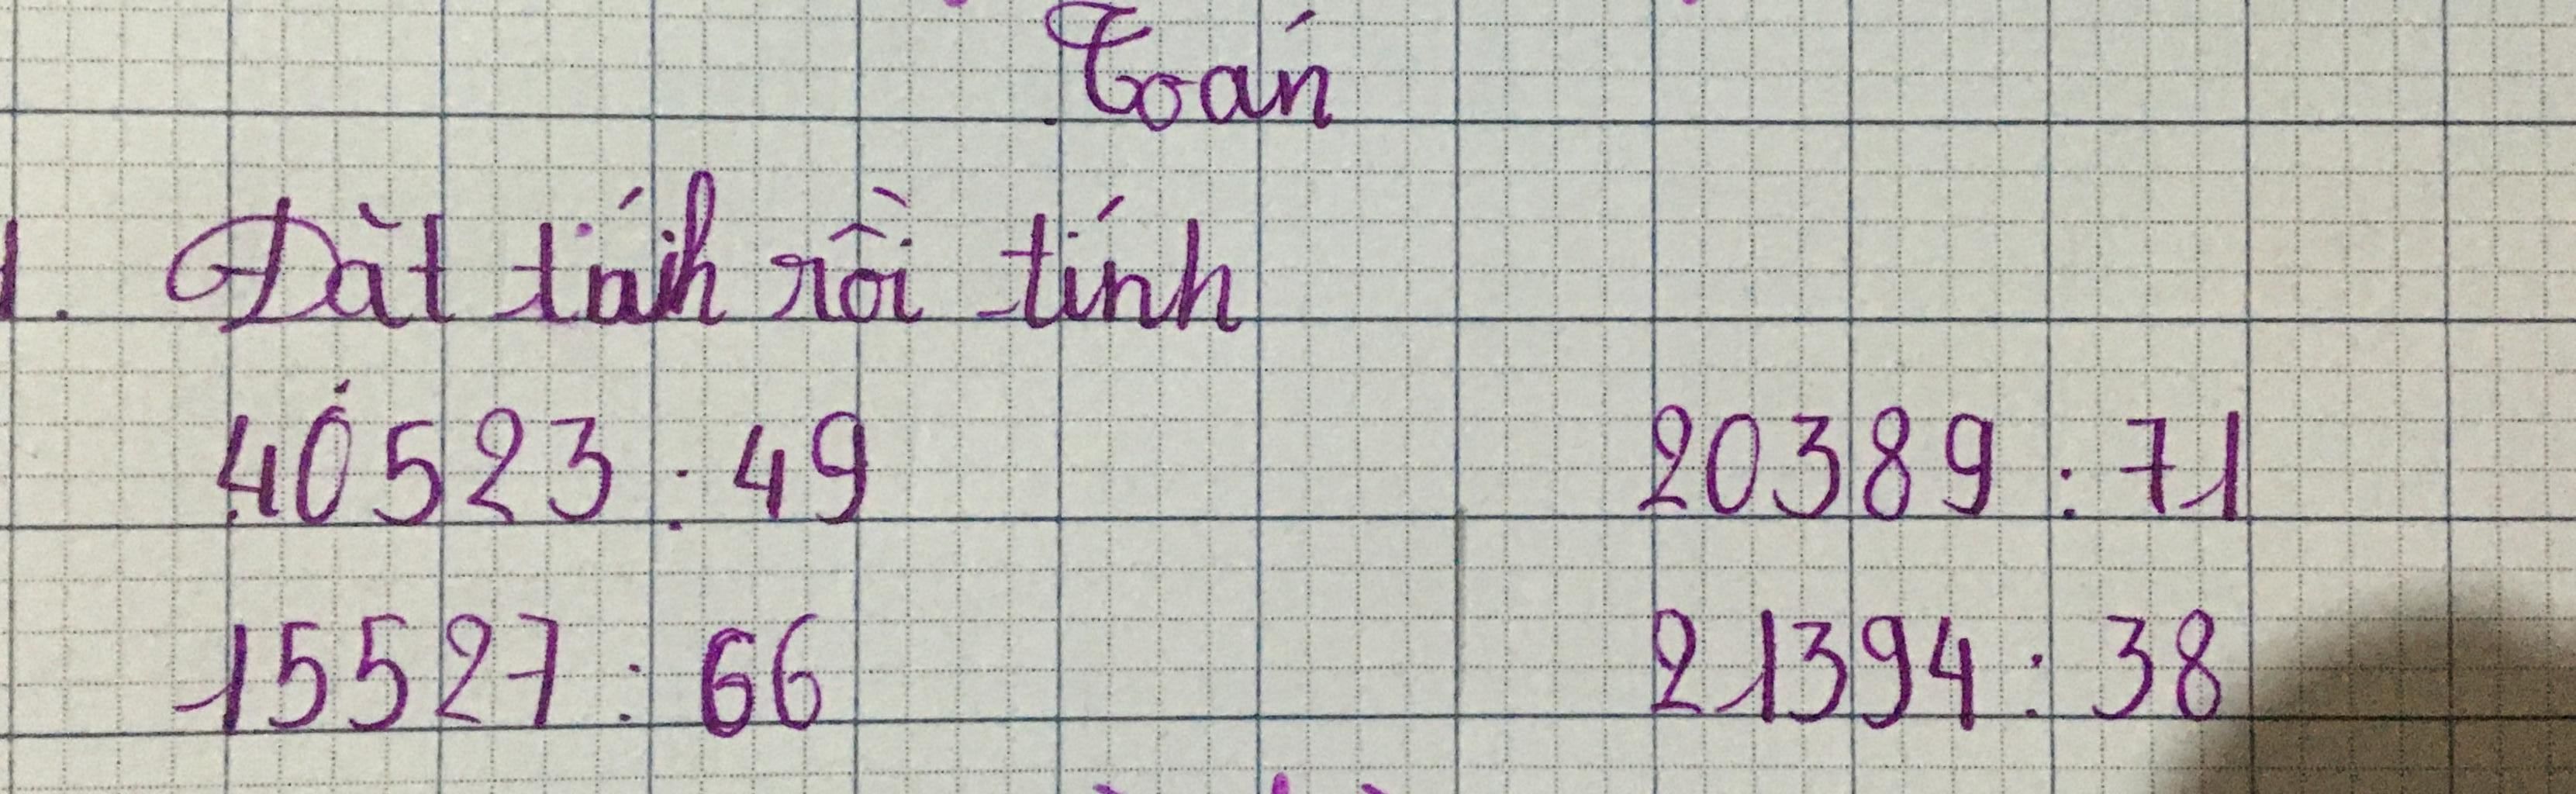 Toán
1. Đặt tính rồi tính
40523 : 49 20389 : 71
15527 : 66 21394 : 38